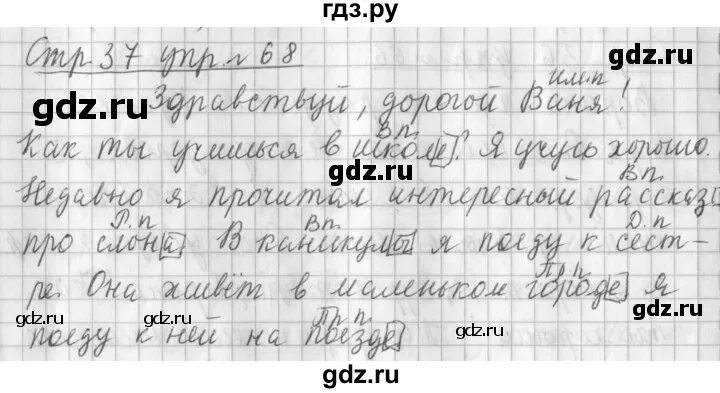 гдз.ру
Стр 37 упр. № 68
им.п
Здравствуй, дорогой Ваня!
В п.
Как ты учишься в школе? Я учусь хорошо.
В п.
Недавно я прочитал интересный рассказ
Р. п Вп. Д. п
про слона В каникулы я поеду к сест-
Пр п.
ре. Она живёт в маленьком городе я
Пр. п.
поеду к ней на поезде
gdz.ru
gdz.ru
gdz.ru
gdz.ru
gdz.ru
gdz.ru
gdz.ru
gdz.ru
gdz.ru
gdz.ru
gdz.ru
gdz.ru